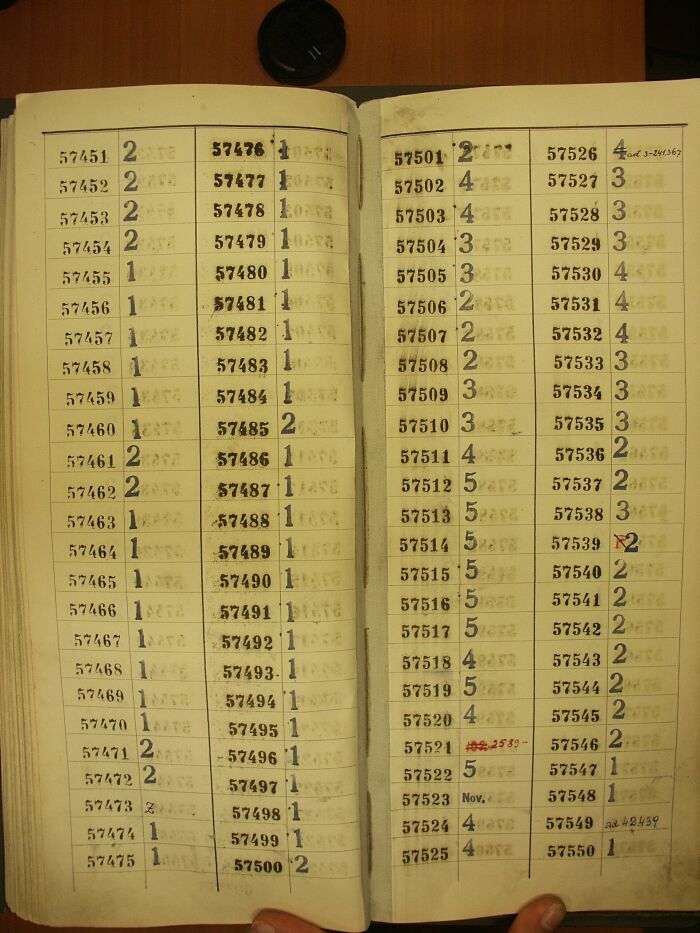 57451 2
57452 2
57453 2
57454 2
57455 1
57456 1
57457 1
57458 1
57459 1
57460 1
57461 2
57462 2
57463 1
57464 1
57465 1
57466 1
57467 1
57468 1
57469 1
57470 1
57471 2
57472 2
57473 z
57474 1
57475 1
57476 1
57477 1
57478 1
57479 1
57480 1
57481 1
57482 1
57483 1
57484 1
57485 2
57486 1
57487 1
57488 1
57489 1
57490 1
57491 1
57492 1
57493 1
57494 1
57495 1
57496 1
57497 1
57498 1
57499 1
57500 2
57501 2
57502 4
57503 4
57504 3
57505 3
57506 2
57507 2
57508 2
57509 3
57510 3
57511 4
57512 5
57513 5
57514 5
57515 5
57516 5
57517 5
57518 4
57519 5
57520 4
57521 2589-
57522 5
57523 Nov.
57524 4
57525 4
57526 4 ad 3-241.367
57527 3
57528 3
57529 3
57530 4
57531 4
57532 4
57533 3
57534 3
57535 3
57536 2
57537 2
57538 3
57539 2
57540 2
57541 2
57542 2
57543 2
57544 2
57545 2
57546 2
57547 1
57548 1
57549 ad 42.439
57550 1